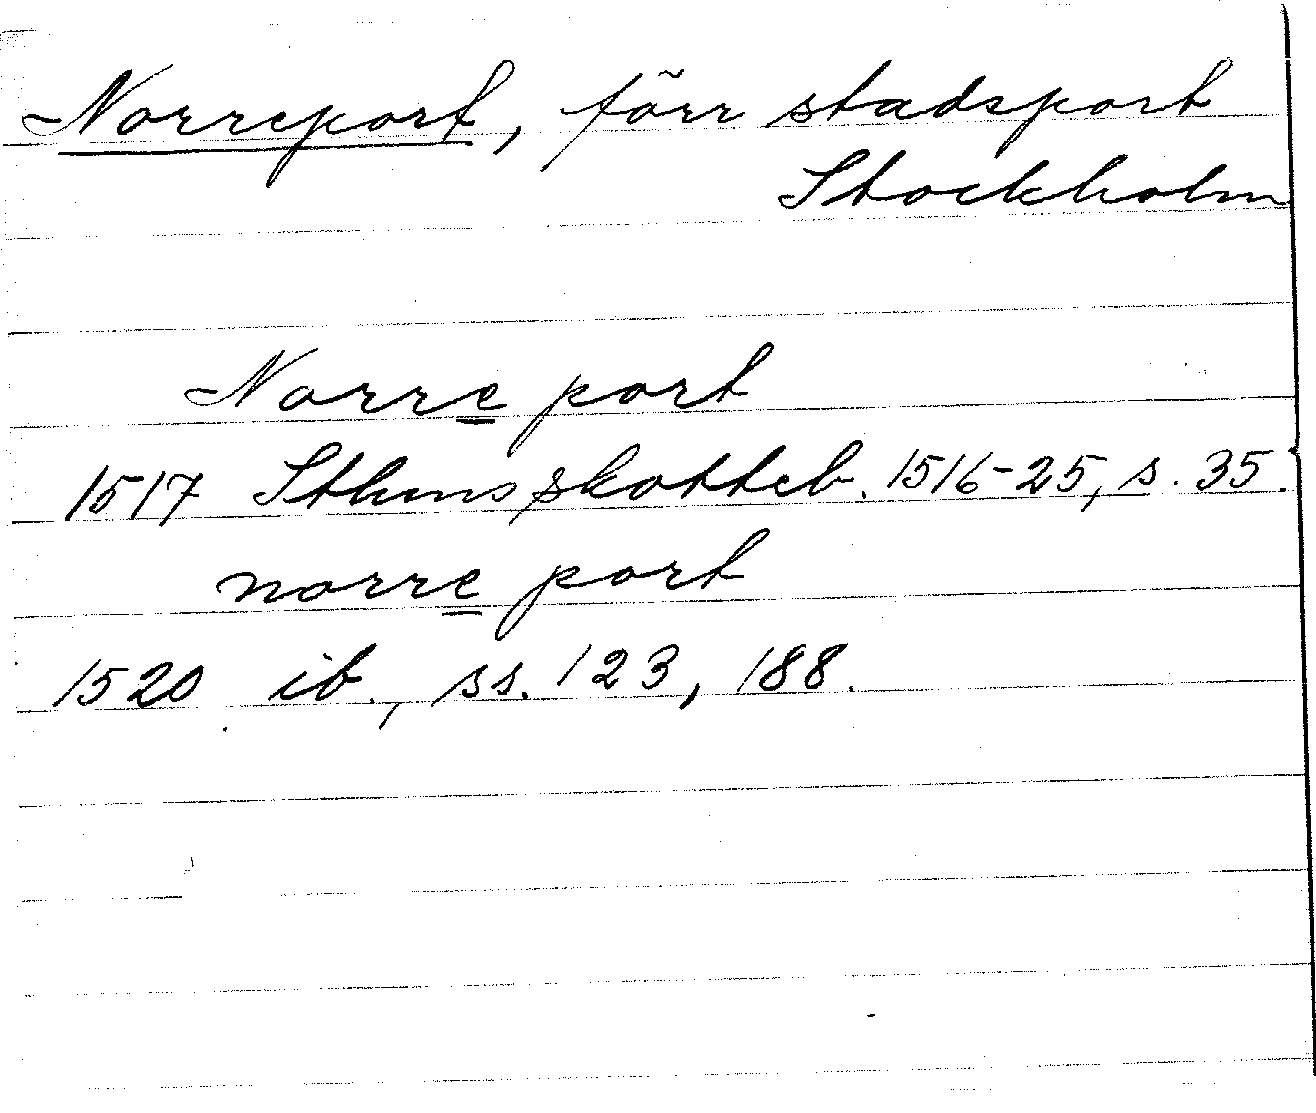 Norreport, förr stadsport
Stockholm
Norre port
1517 Sthms skotteb. 1516-25, s. 35.
norre port
1520 ib., ss. 123, 188.